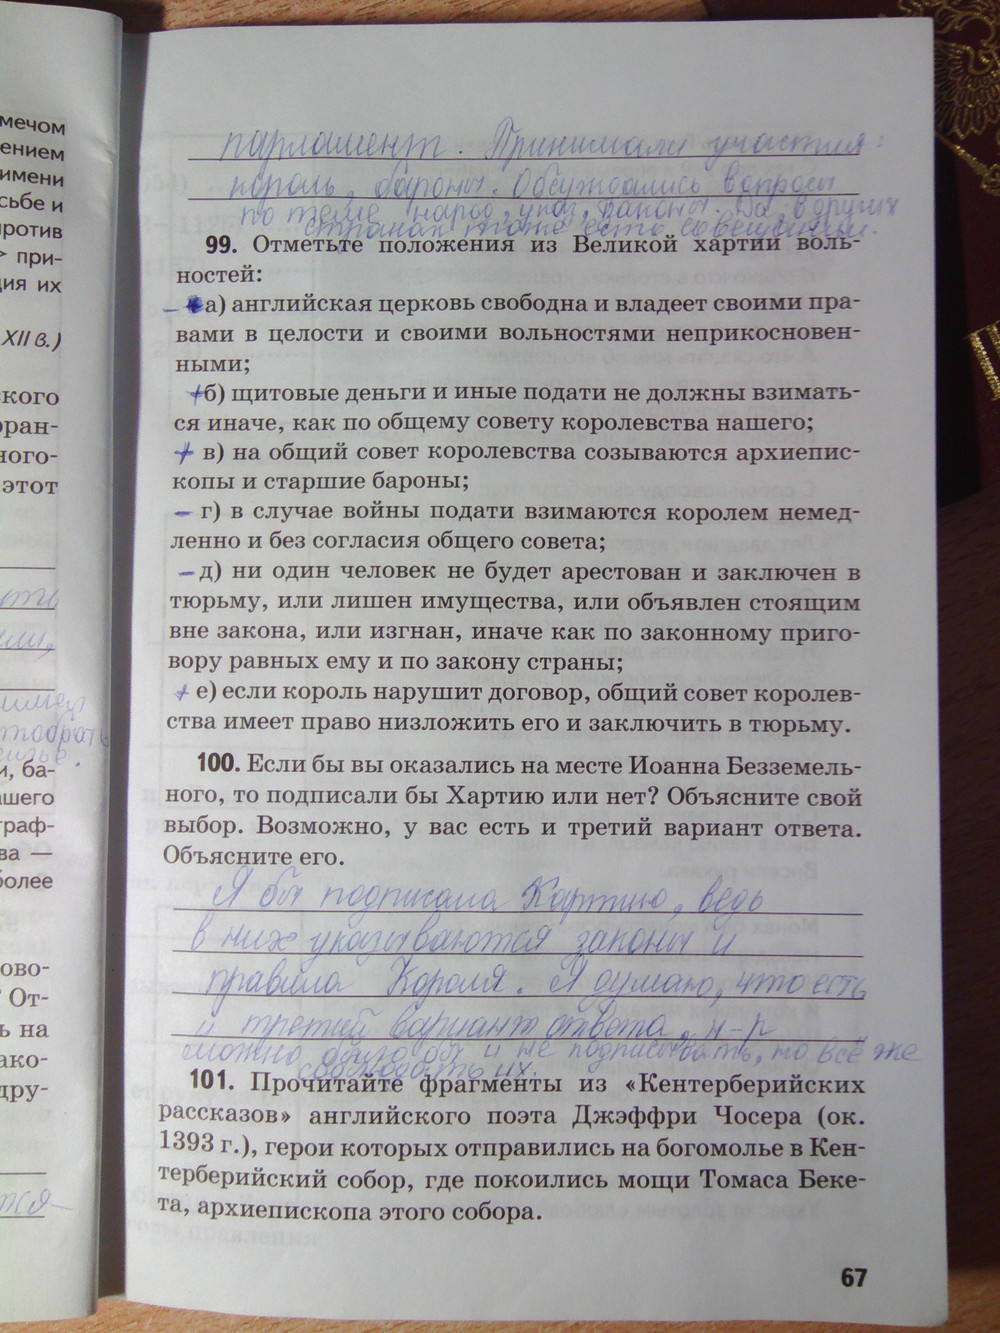 мечом
ением
имени
сьбе и
против
> при-
ция их
XII в.)
ского
ран-
ного-
этот
и, ба-
ашего
граф-
ва —
более
ово-
? От-
ь на
ако-
дру-
тся
парламент. Принимали участия:
король, бароны. Обсуждались вопросы
по теме народ, указ, законы. Да, в других
странах тоже есть совещания.
99. Отметьте положения из Великой хартии воль-
ностей:
а) английская церковь свободна и владеет своими пра-
вами в целости и своими вольностями неприкосновен-
ными;
+б) щитовые деньги и иные подати не должны взимать-
ся иначе, как по общему совету королевства нашего;
+ в) на общий совет королевства созываются архиепис-
копы и старшие бароны;
– г) в случае войны подати взимаются королем немед-
ленно и без согласия общего совета;
– д) ни один человек не будет арестован и заключен в
тюрьму, или лишен имущества, или объявлен стоящим
вне закона, или изгнан, иначе как по законному приго-
вору равных ему и по закону страны;
+ е) если король нарушит договор, общий совет королев-
ства имеет право низложить его и заключить в тюрьму.
100. Если бы вы оказались на месте Иоанна Безземель-
ного, то подписали бы Хартию или нет? Объясните свой
выбор. Возможно, у вас есть и третий вариант ответа.
Объясните его.
Я бы подписала Хартию, ведь
в них указываются законы и
правила Короля. Я думаю, что есть
и третий вариант ответа, н-р
можно было бы и не подписывать, но всё же
соблюдать их.
101. Прочитайте фрагменты из «Кентерберийских
рассказов» английского поэта Джэффри Чосера (ок.
1393 г.), герои которых отправились на богомолье в Кен-
терберийский собор, где покоились мощи Томаса Беке-
та, архиепископа этого собора.
67